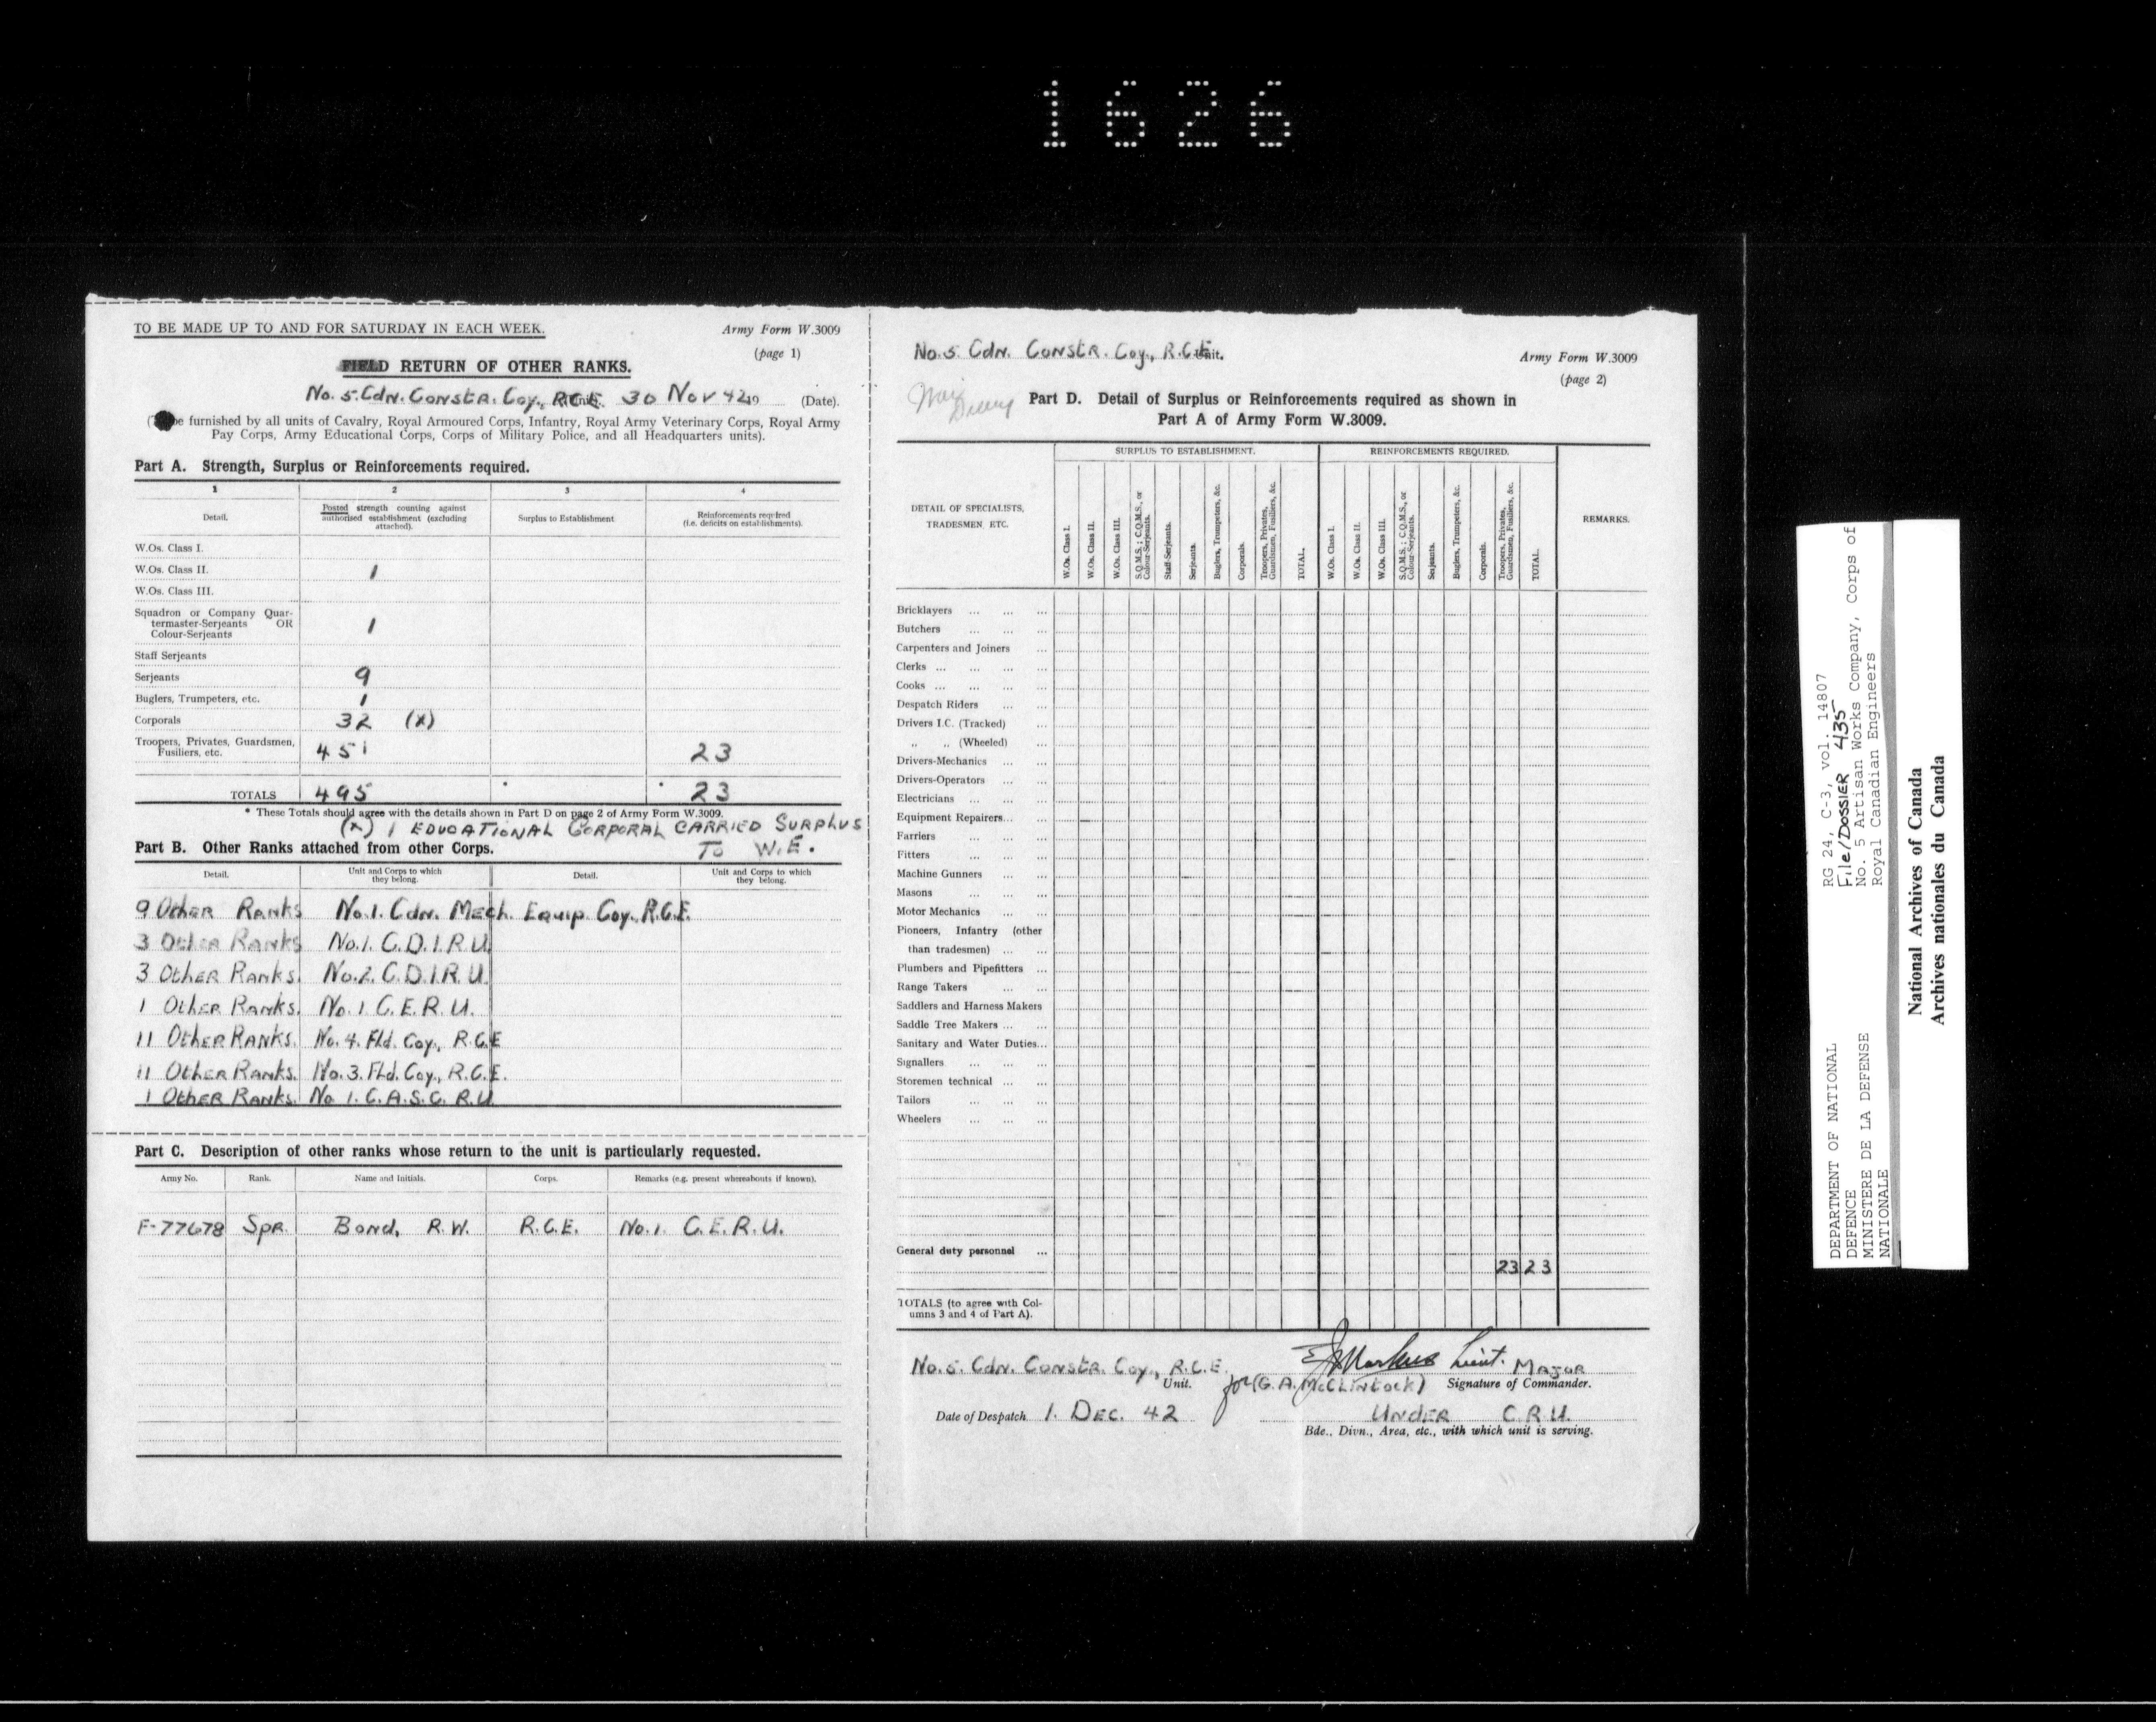 1626
TO BE MADE UP TO AND FOR SATURDAY IN EACH WEEK.
Army Form W.3009
(page 1)
FIELD RETURN OF OTHER RANKS.
No. 5. Cdn. Constr. Coy., R.C.E. 30 Nov 42 19 (Date).
be furnished by all units of Cavalry, Royal Armoured Corps, Infantry, Royal Army Veterinary Corps, Royal Army
Pay Corps, Army Educational Corps, Corps of Military Police, and all Headquarters units).
Part A. Strength, Surplus or Reinforcements required.
1 2 3 4
Detail. Posted strength counting against authorised establishment (excluding attached). Surplus to Establishment Reinforcements required (i.e. deficits on establishments).
W.Os. Class I.
W.Os. Class II. 1
W.Os. Class III.
Squadron or Company Quar-
termaster-Serjeants OR
Colour-Serjeants 1
Staff Serjeants
Serjeants 9
Buglers, Trumpeters, etc. 1
Corporals 32 (x)
Troopers, Privates, Guardsmen,
Fusiliers, etc. 451 23
TOTALS 495 * * 23
* These Totals should agree with the details shown in Part D on page 2 of Army Form W.3009.
(x) 1 EDUCATIONAL CORPORAL CARRIED SURPLUS
TO W.E.
Part B. Other Ranks attached from other Corps.
Detail. Unit and Corps to which they belong. Detail. Unit and Corps to which they belong.
9 Other Ranks No. 1. Cdn. Mech. Equip. Coy., R.C.E.
3 Other Ranks No. 1. C.D.I.R.U.
3 Other Ranks. No. 2. C.D.I.R.U.
1 Other Ranks. No. 1 C.E.R.U.
11 Other Ranks. No. 4. Fld. Coy., R.C.E
11 Other Ranks. No. 3. Fld. Coy., R.C.E.
1 Other Ranks. No 1. C.A.S.C. R.U.
Part C. Description of other ranks whose return to the unit is particularly requested.
Army No. Rank. Name and Initials. Corps. Remarks (e.g. present whereabouts if known).
F-77678 Spr. Bond, R.W. R.C.E. No. 1. C.E.R.U.
No. 5. Cdn. Constr. Coy., R.C.E. Unit.
Army Form W.3009
(page 2)
Part D. Detail of Surplus or Reinforcements required as shown in
Part A of Army Form W.3009.
DETAIL OF SPECIALISTS,
TRADESMEN, ETC.
SURPLUS TO ESTABLISHMENT.
W.Os. Class I.
W.Os. Class II.
W.Os. Class III.
S.Q.M.S.; C.Q.M.S., or Colour-Serjeants.
Staff-Serjeants.
Serjeants.
Buglers, Trumpeters, &c.
Corporals.
Troopers, Privates, Guardsmen, Fusiliers, &c.
TOTAL.
REINFORCEMENTS REQUIRED.
W.Os. Class I.
W.Os. Class II.
W.Os. Class III.
S.Q.M.S.; C.Q.M.S., or Colour-Serjeants.
Serjeants.
Buglers, Trumpeters, &c.
Corporals.
Troopers, Privates, Guardsmen, Fusiliers, &c.
TOTAL.
REMARKS.
Bricklayers ... ... ...
Butchers ... ... ...
Carpenters and Joiners ...
Clerks ... ... ... ...
Cooks ... ... ... ...
Despatch Riders ... ...
Drivers I.C. (Tracked) ...
„ „ (Wheeled) ...
Drivers-Mechanics ... ...
Drivers-Operators ... ...
Electricians ... ... ...
Equipment Repairers... ...
Farriers ... ... ...
Fitters ... ... ...
Machine Gunners ... ...
Masons ... ... ...
Motor Mechanics ... ...
Pioneers, Infantry (other
than tradesmen) ... ...
Plumbers and Pipefitters ...
Range Takers ... ...
Saddlers and Harness Makers
Saddle Tree Makers ... ...
Sanitary and Water Duties...
Signallers ... ... ...
Storemen technical ... ...
Tailors ... ... ...
Wheelers ... ... ...
General duty personnel ...
23 23
TOTALS (to agree with Col-
umns 3 and 4 of Part A).
No. 5. Cdn. Constr. Coy., R.C.E. Lieut. Major
Unit. for (G.A. McClintock) Signature of Commander.
Date of Despatch 1. Dec. 42 Under C.R.U.
Bde., Divn., Area, etc., with which unit is serving.
RG 24, C-3, vol. 14807
File/Dossier 435
No. 5 Artisan Works Company, Corps of
Royal Canadian Engineers
DEPARTMENT OF NATIONAL
DEFENCE
MINISTERE DE LA DEFENSE
NATIONALE
National Archives of Canada
Archives nationales du Canada